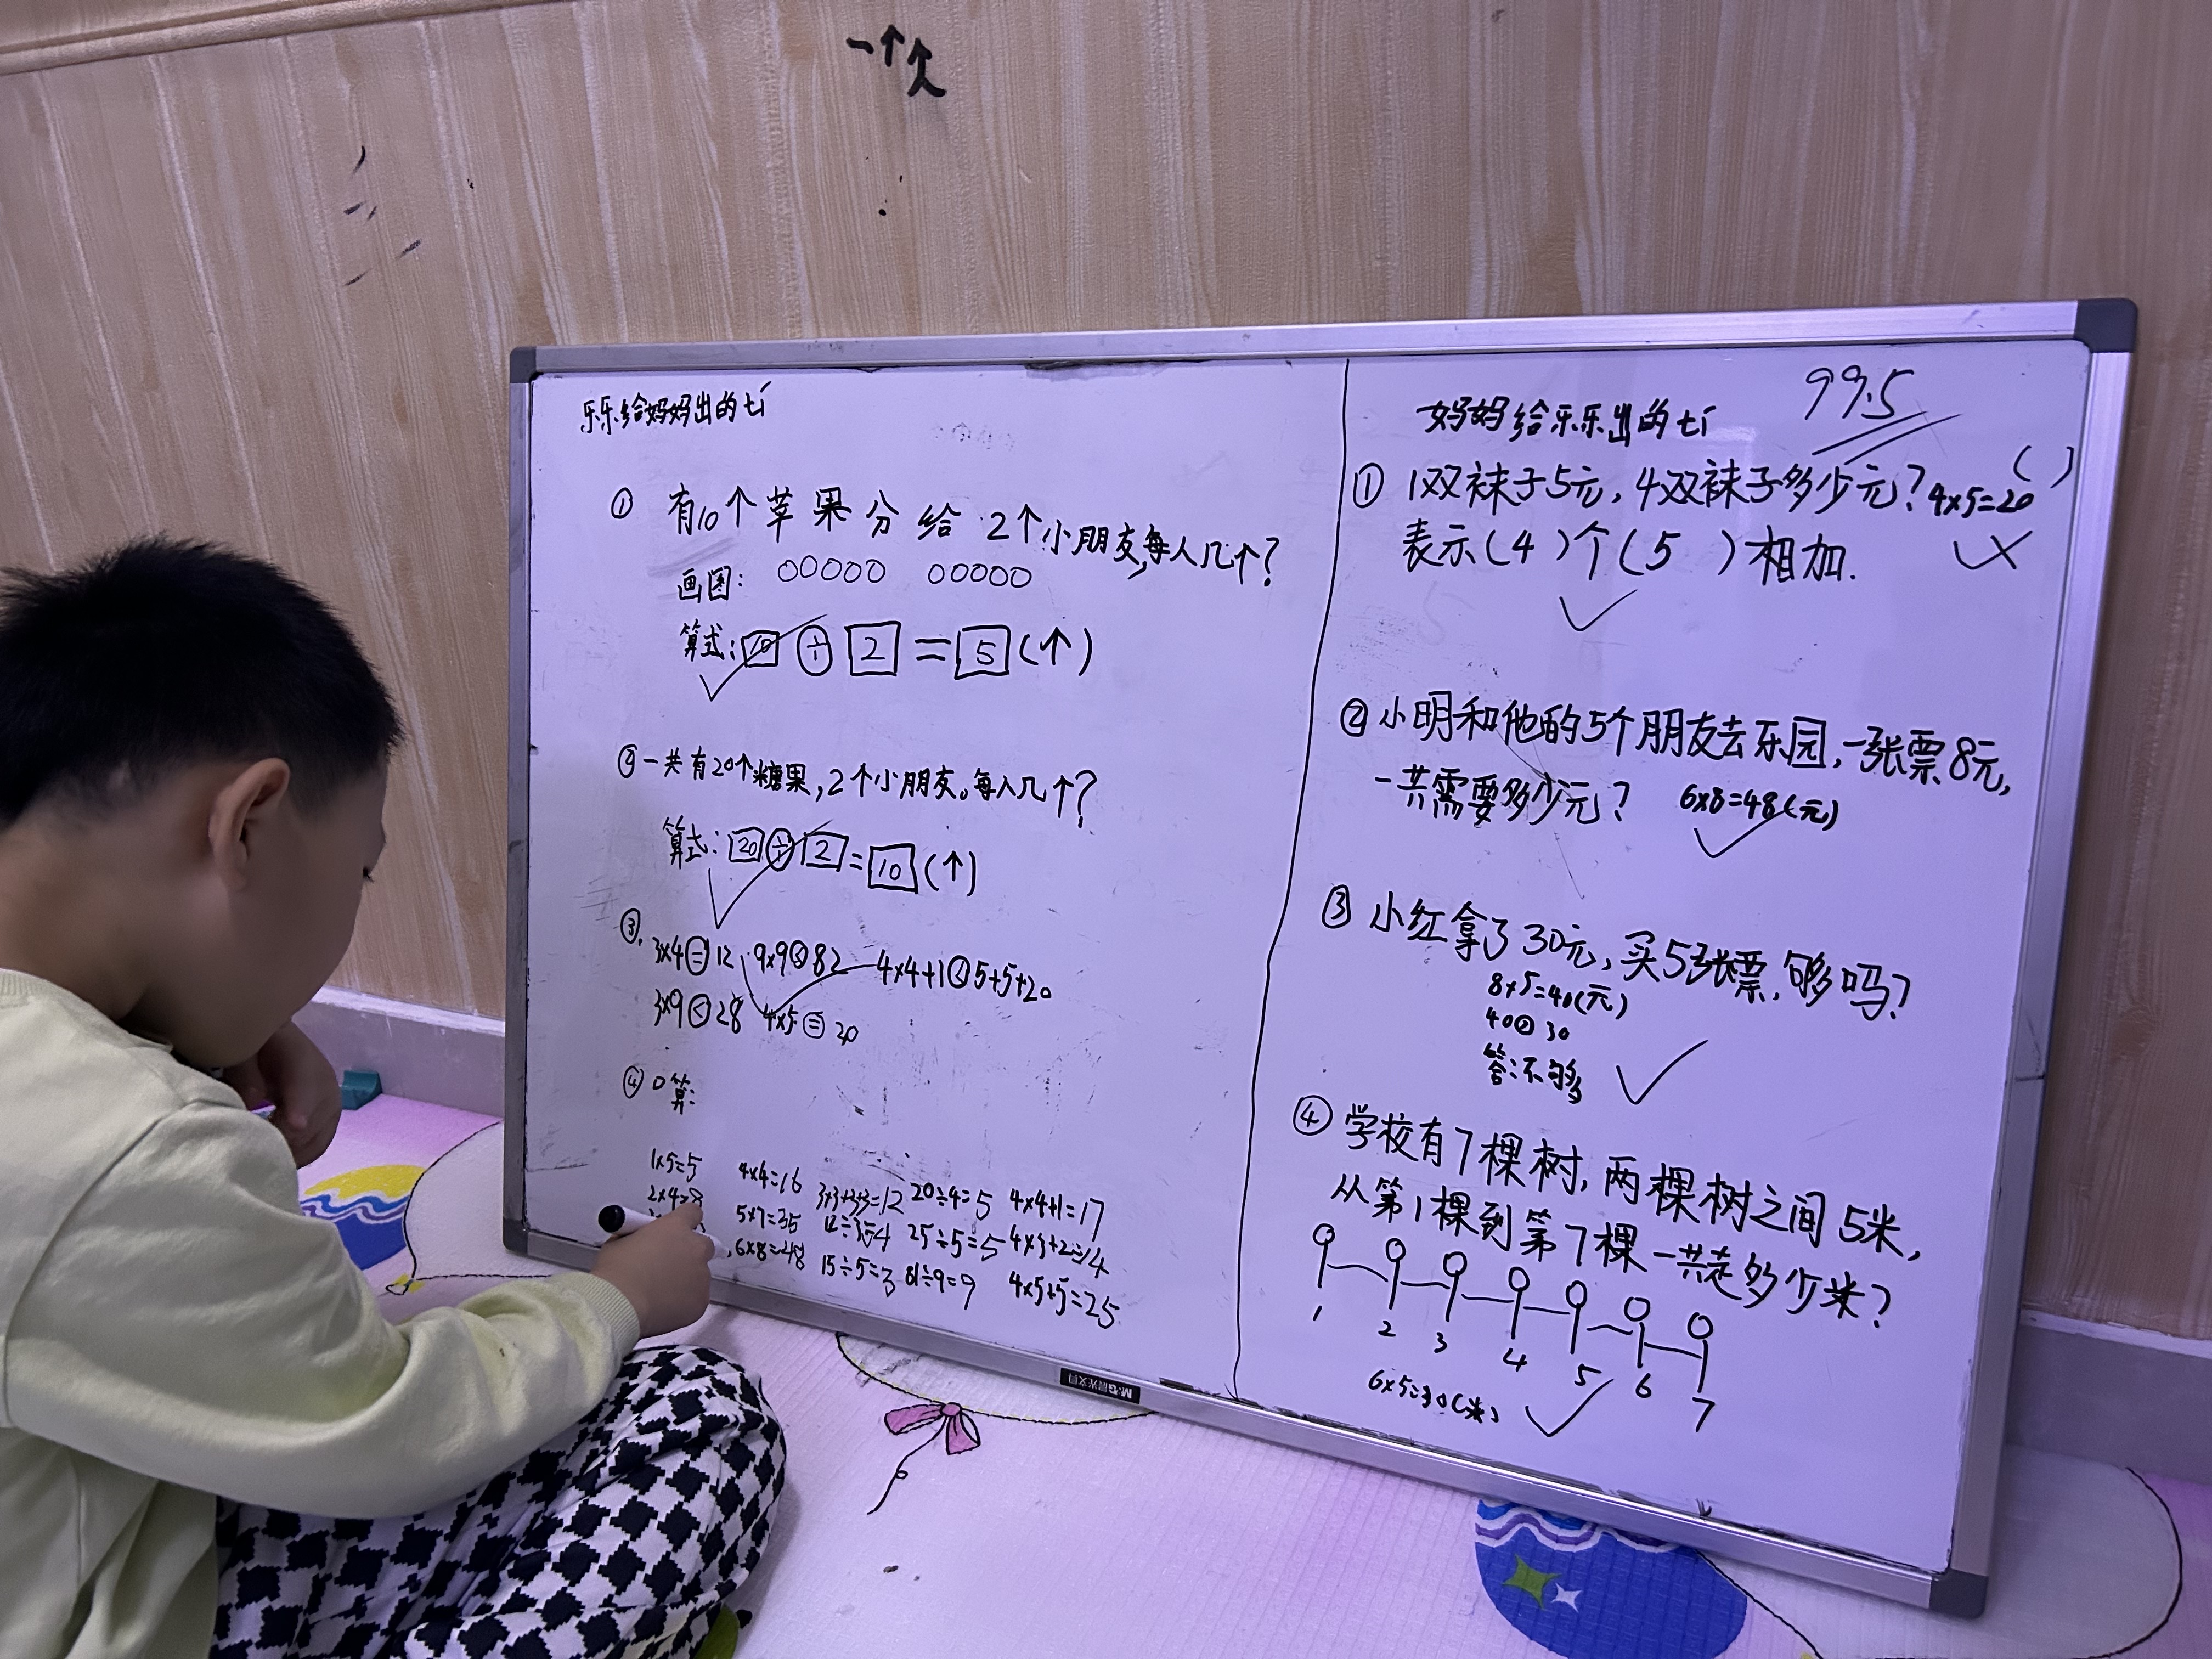 一个欠
乐乐给妈妈出的tí
① 有10个苹果分给2个小朋友,每人几个?
画图: ○○○○○ ○○○○○
算式: 10 ÷ 2 = 5 (个)
② 一共有20个糖果,2个小朋友。每人几个?
算式: 20 ÷ 2 = 10 (个)
③. 3×4=12 9×9<82 4×4+1<5+5+20
3×9<28 4×5=20
④ 口算:
1×5=5 4×4=16 3+3+3+3=12 20÷4=5 4×4+1=17
2×4=8 5×7=35 12÷3=4 25÷5=5 4×3+2=14
6×8=48 15÷5=3 81÷9=9 4×5+5=25
妈妈给乐乐出的tí
99.5
① 1双袜子5元,4双袜子多少元? 4×5=20 ( )
表示(4)个(5)相加.
② 小明和他的5个朋友去乐园,一张票8元,
一共需要多少元? 6×8=48(元)
③ 小红拿了30元,买5张票,够吗?
8×5=40(元)
40>30
答:不够
④ 学校有7棵树,两棵树之间5米,
从第1棵到第7棵一共走多少米?
1 2 3 4 5 6 7
6×5=30(米)
M&G晨光文具